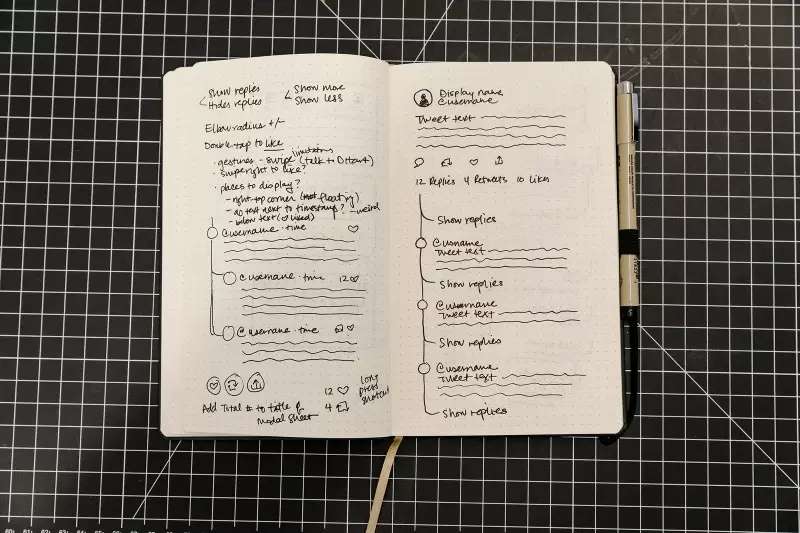 Show replies
Hides replies
Show more
Show less
Elbow radius +/-
Double-tap to like
limitations
· gestures - swipe (talk to Dttant)
· swipe right to like?
· places to display?
- right-top corner (not floating)
- do text next to timestamp? - weird
- below text (♡ liked)
@username · time
@username · time 12
@username · time
12
4
long press shortcut
Add Total # to title of
Modal Sheet
Display name
@username
Tweet text
12 Replies 4 Retweets 10 Likes
Show replies
@username
Tweet text
Show replies
@username
Tweet text
Show replies
@username
Tweet text
Show replies